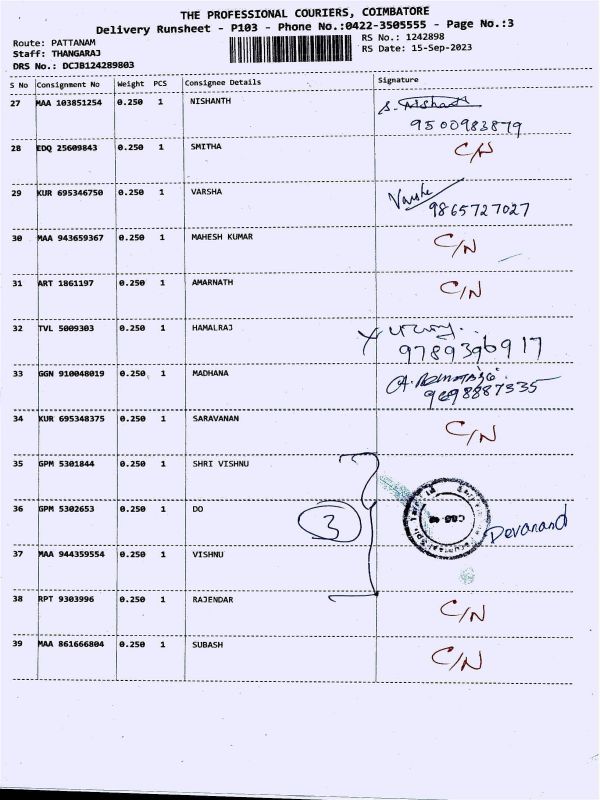 THE PROFESSIONAL COURIERS, COIMBATORE
Delivery Runsheet - P103 - Phone No.:0422-3505555 - Page No.:3
Route: PATTANAM
RS No.: 1242898
Staff: THANGARAJ
RS Date: 15-Sep-2023
DRS No.: DCJB124289803
S No Consignment No Weight PCS Consignee Details Signature
27 MAA 103851254 0.250 1 NISHANTH S. Nishanth
9500983879
28 EDQ 25609843 0.250 1 SMITHA C/N
29 KUR 695346750 0.250 1 VARSHA Varsha
9865727027
30 MAA 943659367 0.250 1 MAHESH KUMAR C/N
31 ART 1861197 0.250 1 AMARNATH C/N
32 TVL 5009303 0.250 1 HAMALRAJ
9789396917
33 GGN 910048019 0.250 1 MADHANA
9698887335
34 KUR 695348375 0.250 1 SARAVANAN C/N
35 GPM 5301844 0.250 1 SHRI VISHNU
36 GPM 5302653 0.250 1 DO 3 Devanand
37 MAA 944359554 0.250 1 VISHNU
38 RPT 9303996 0.250 1 RAJENDAR C/N
39 MAA 861666804 0.250 1 SUBASH C/N